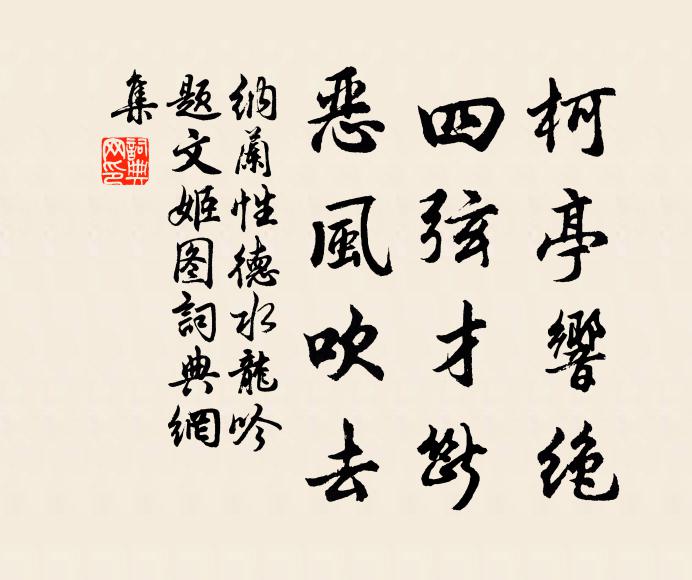 柯亭響绝
四弦才斷
惡風吹去
納蘭性德水龍吟
题文姬图詞典網
集
詞典網印